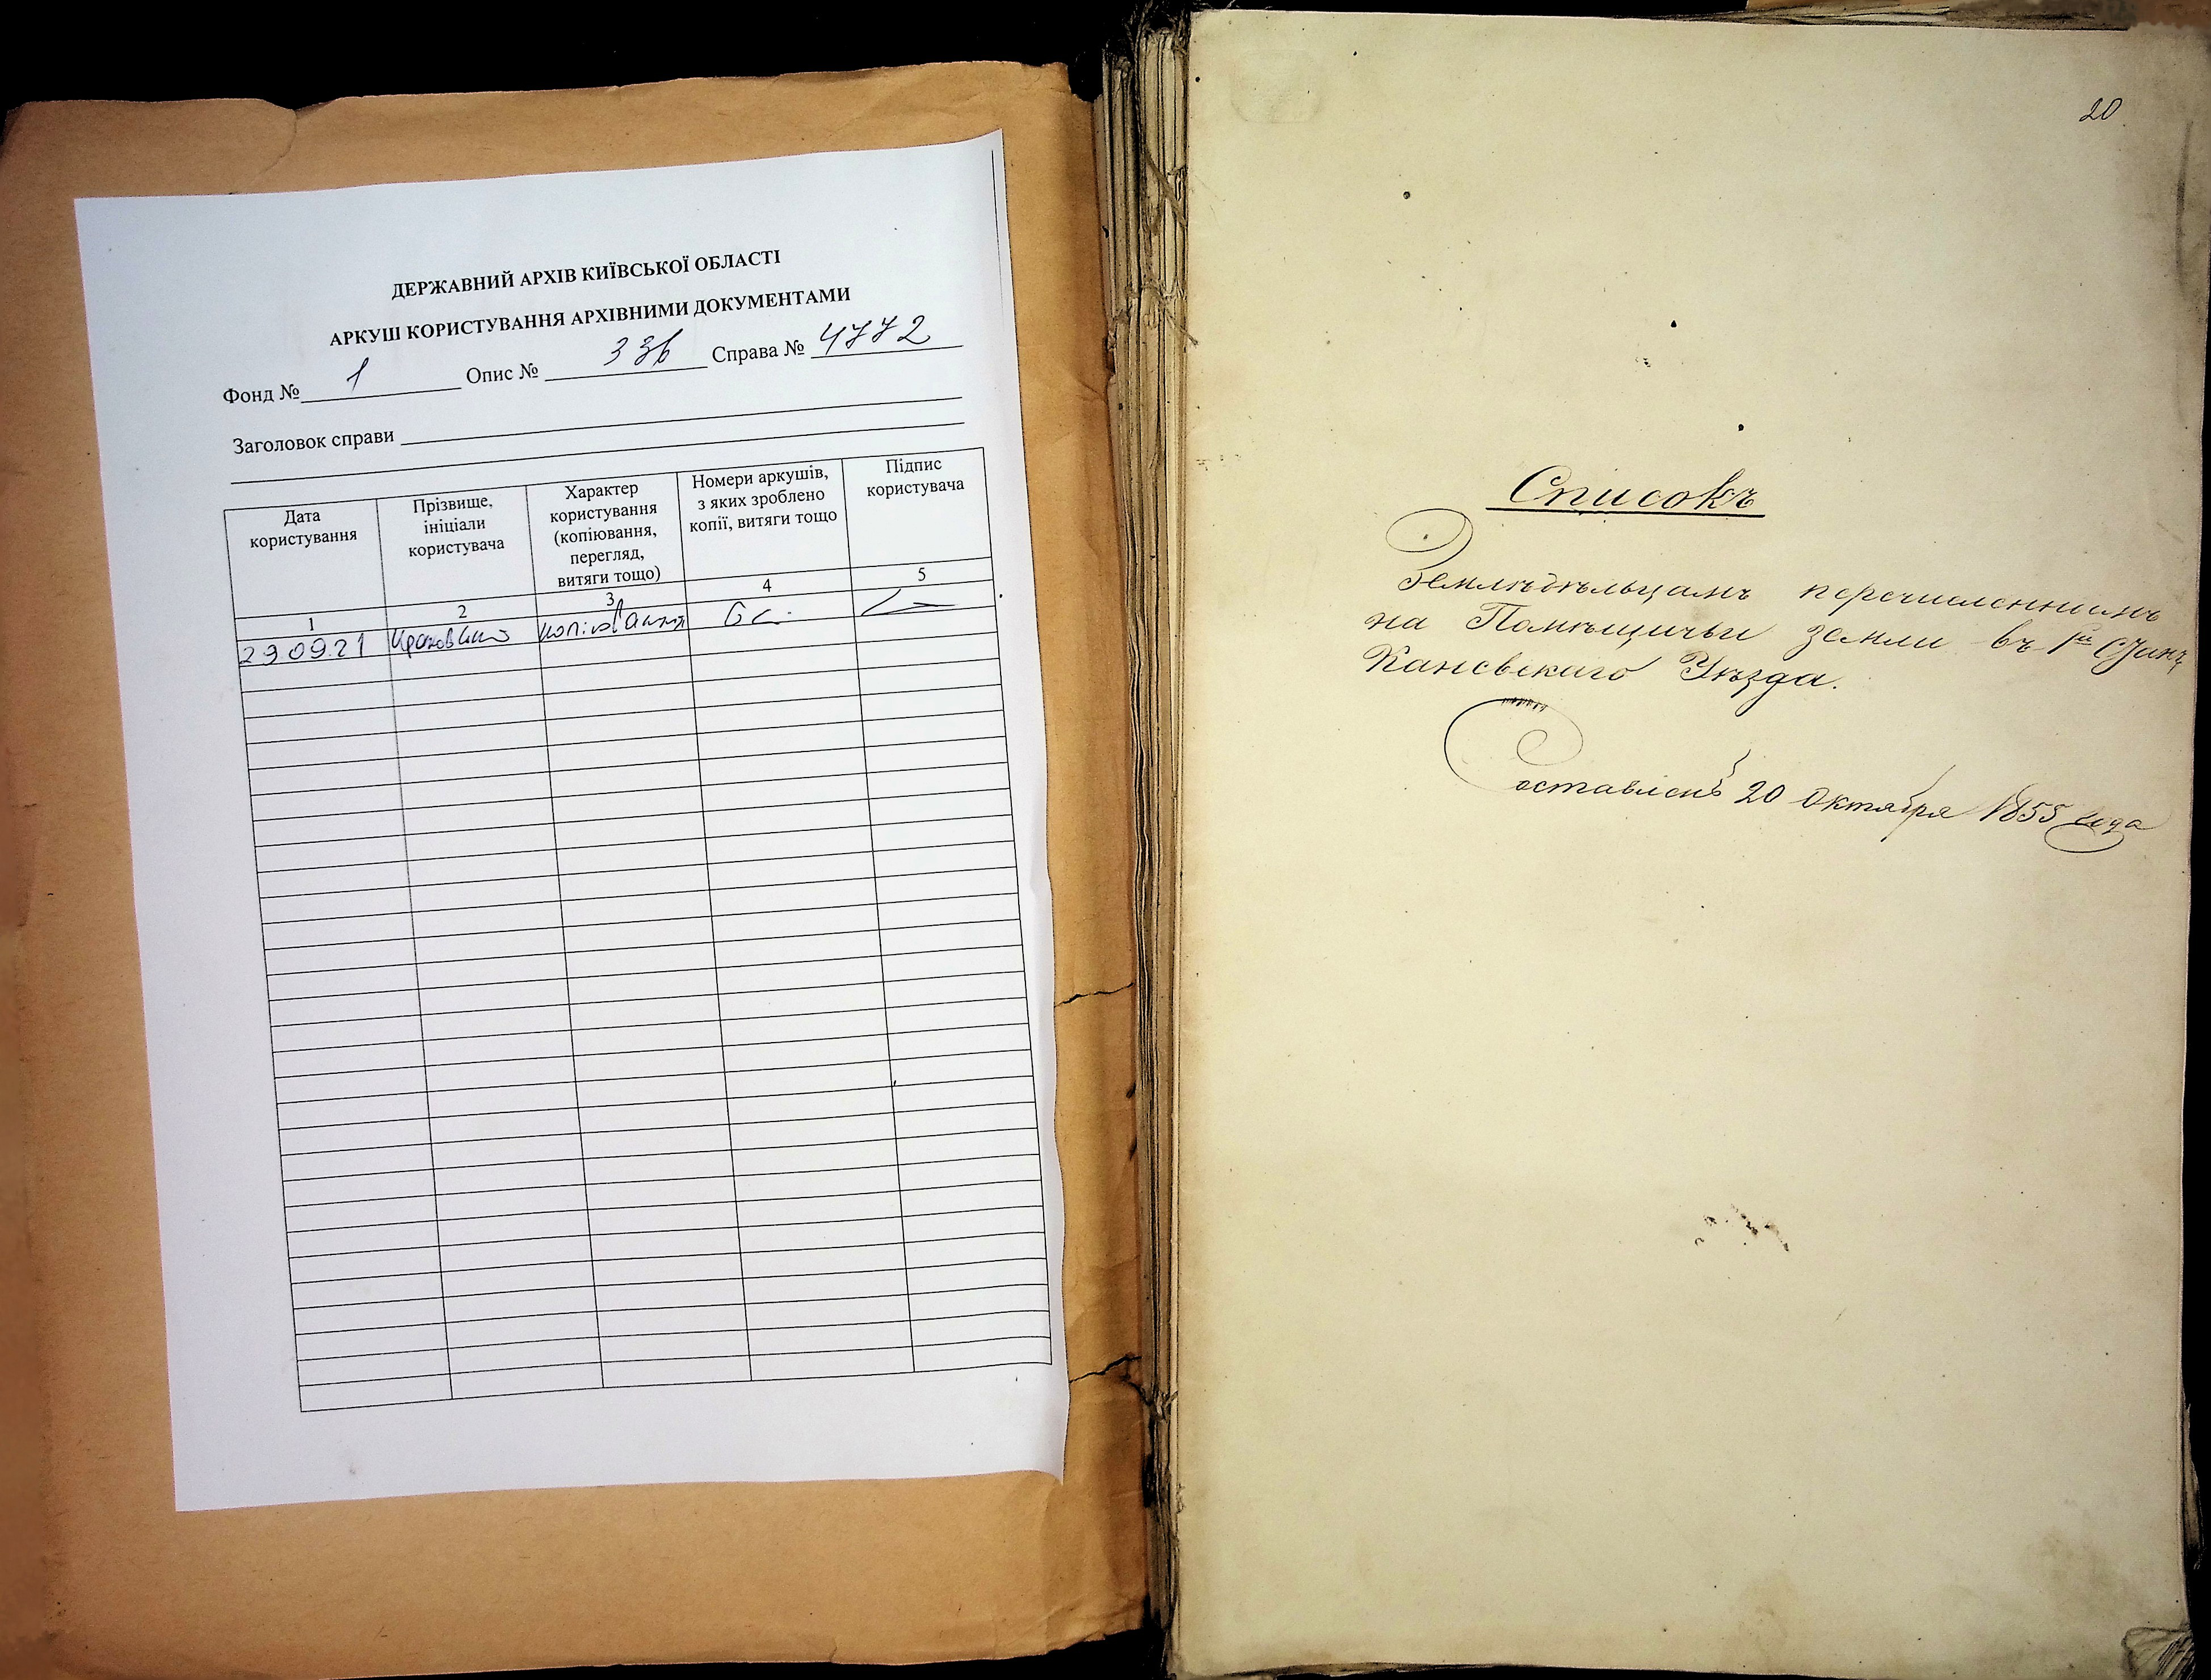 ДЕРЖАВНИЙ АРХІВ КИЇВСЬКОЇ ОБЛАСТІ
АРКУШ КОРИСТУВАННЯ АРХІВНИМИ ДОКУМЕНТАМИ
Фонд № 1 Опис № 336 Справа № 4772
Заголовок справи
Дата користування
Прізвище, ініціали користувача
Характер користування (копіювання, перегляд, витяги тощо)
Номери аркушів, з яких зроблено копії, витяги тощо
Підпис користувача
1 2 3 4 5
29.09.21 копіювання
20
Списокъ
Землѣдѣльцамъ перечисленнымъ
на Помѣщичьи земли въ 1й Станѣ
Каневскаго Уѣзда.
Составленъ 20 Октября 1855 года